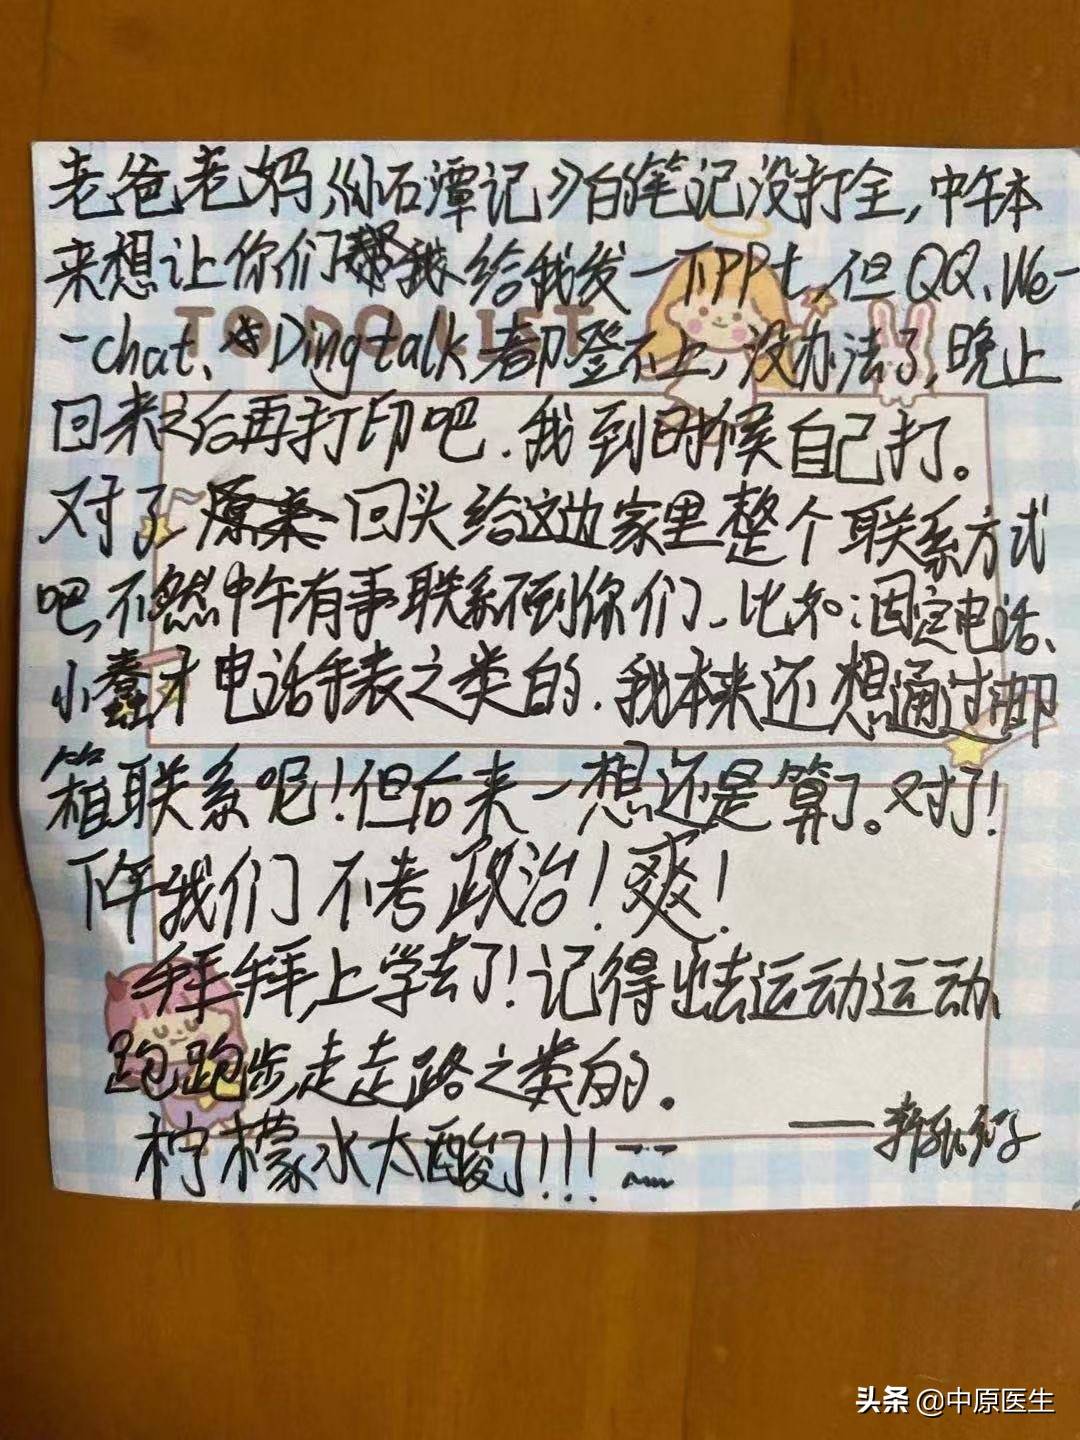 老爸老妈,《小石潭记》的笔记没打全,中午本
来想让你们帮我给我发一下PPt,但QQ、We-
-chat、Dingtalk都登不上,没办法了,晚上
TO DO LIST
回来之后再打印吧.我到时候自己打。
对了~原来 回头给这边家里整个联系方式
吧,不然中午有事联系不到你们、比如:固定电话、
小蠢才电话手表之类的.我本来还想通过邮
箱联系呢!但后来一想还是算了。对了!
下午我们不考政治!爽!
拜拜,上学去了!记得出去运动运动、
跑跑步,走走路之类的。
柠檬水太酸了!!!
头条 @中原医生